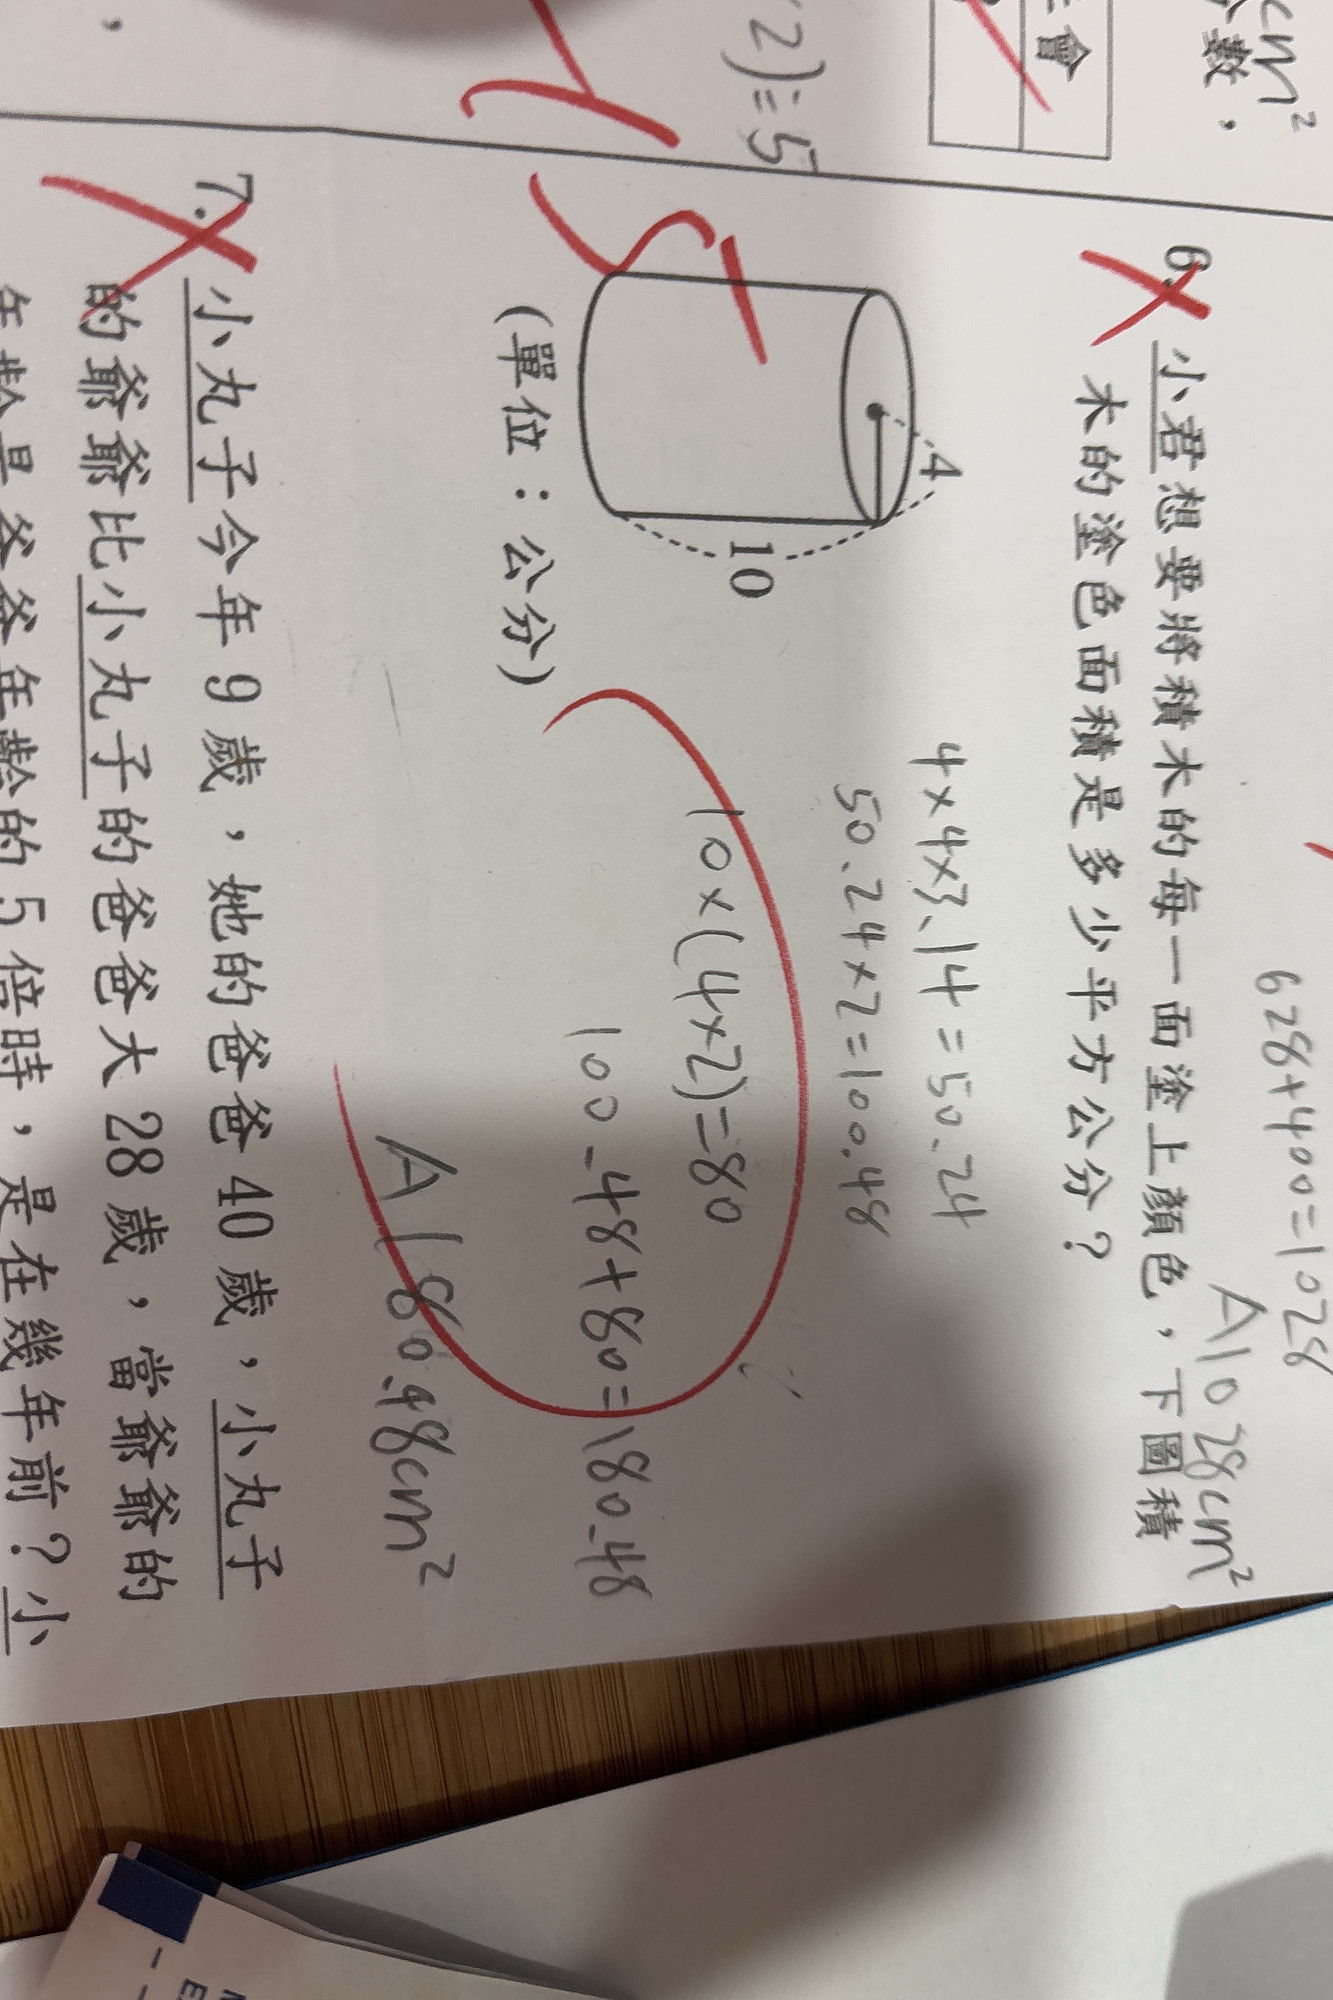 cm²
分數,
會
2)=5
628+400=1028
A 1028cm²
6. 小君想要將積木的每一面塗上顏色,下圖積
木的塗色面積是多少平方公分?
4
10
(單位:公分)
4×4×3.14=50.24
50.24×2=100.48
10×(4×2)=80
100.48+80=180.48
A 180.48cm²
-5
7. 小丸子今年9歲,她的爸爸40歲,小丸子
的爺爺比小丸子的爸爸大28歲,當爺爺的
年齡是爸爸年齡的5倍時,是在幾年前?小